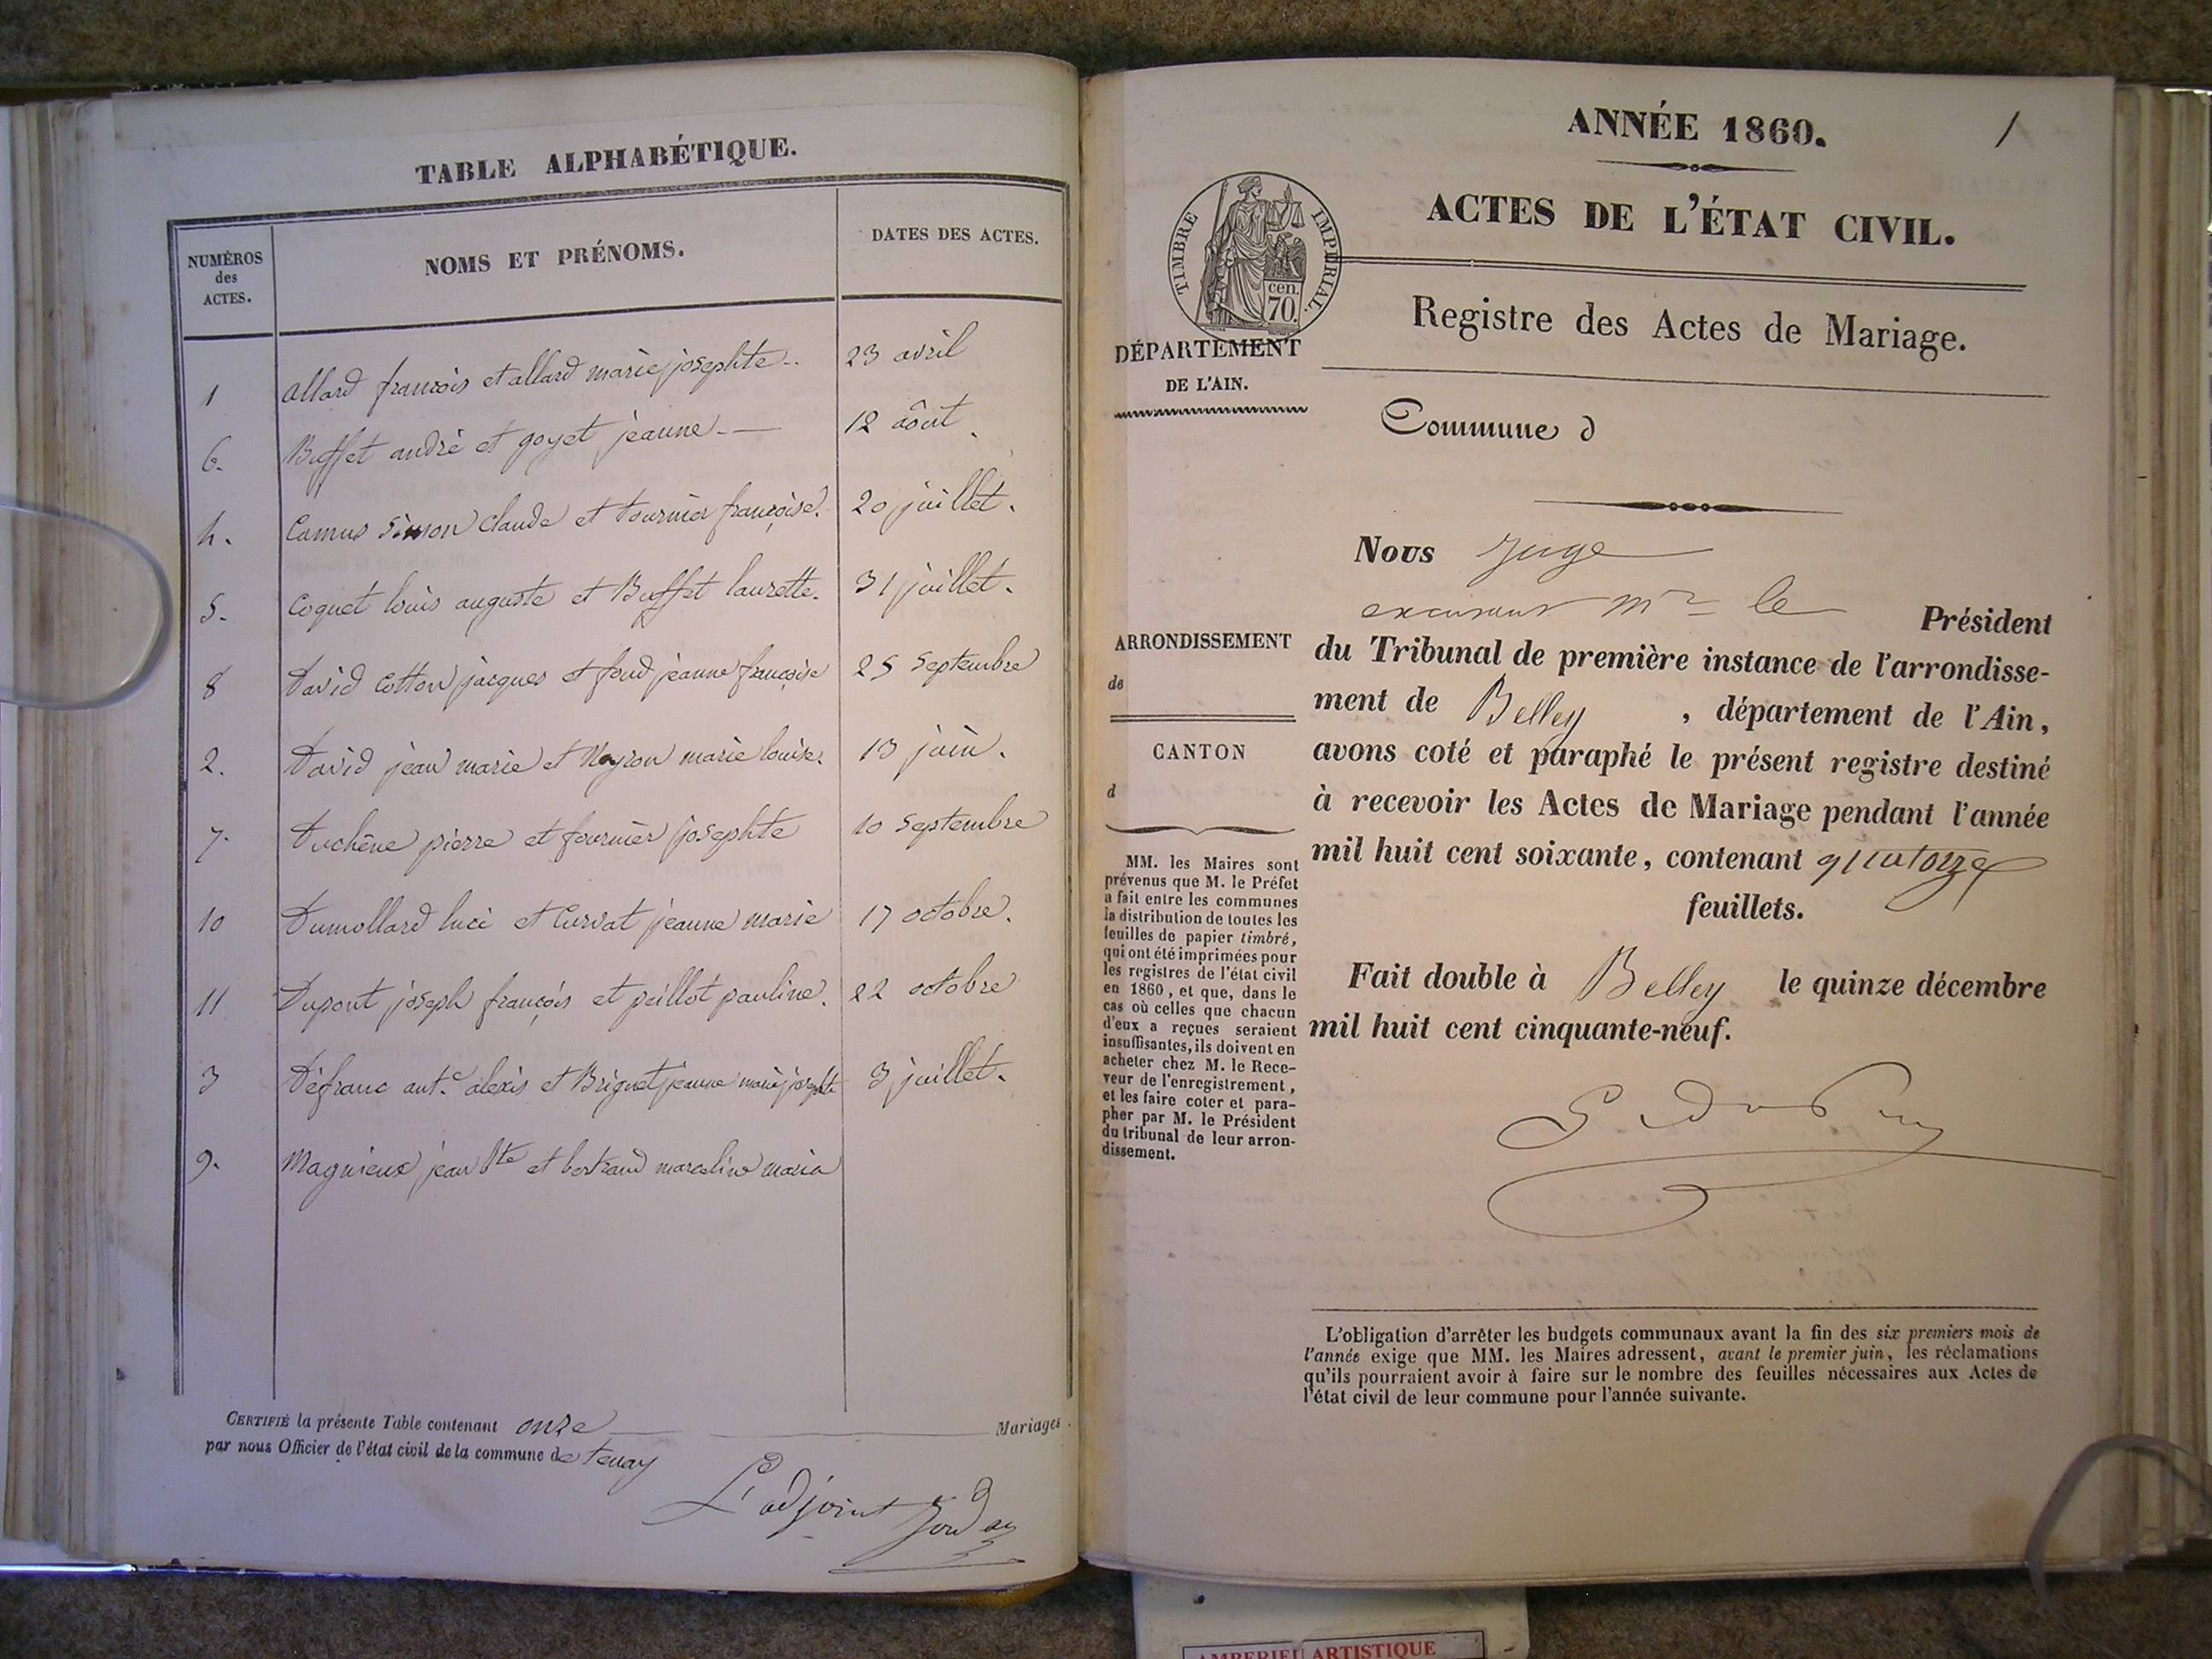 TABLE ALPHABÉTIQUE.
NUMÉROS
des
ACTES.
NOMS ET PRÉNOMS.
DATES DES ACTES.
1 allard francois et allard marie josephte.. 23 avril
6. Buffet andré et goyet jeanne.— 12 août.
4. Camus simon Claude et tournier françoise. 20 juillet.
5. Coquet louis auguste et Buffet laurette. 31 juillet.
8 David Cotton jacques et fond jeanne françoise 25 septembre
2. David jean marie et marie louise. 13 juin.
7. Duchêne pierre et fournier josephte 10 septembre
10 Dumollard luci et Curvat jeanne marie 17 octobre.
11 Dupont joseph françois et peillot pauline. 22 octobre
3 Défranc ant.e alexis et Brignet jeanne marie josephte 3 juillet.
9. Magnieux jean bte et bertrand marceline maria
CERTIFIÉ la présente Table contenant onze Mariages.
par nous Officier de l'état civil de la commune de tenay
L'adjoint
1
ANNÉE 1860.
ACTES DE L'ÉTAT CIVIL.
TIMBRE IMPÉRIAL.
cen.
70.
Registre des Actes de Mariage.
DÉPARTEMENT
DE L'AIN.
Commune d
Nous juge
mr le Président
du Tribunal de première instance de l'arrondisse-
ment de Belley , département de l'Ain,
avons coté et paraphé le présent registre destiné
à recevoir les Actes de Mariage pendant l'année
mil huit cent soixante, contenant quatorze
feuillets.
Fait double à Belley le quinze décembre
mil huit cent cinquante-neuf.
ARRONDISSEMENT
de
CANTON
d
MM. les Maires sont
prévenus que M. le Préfet
a fait entre les communes
la distribution de toutes les
feuilles de papier timbré,
qui ont été imprimées pour
les registres de l'état civil
en 1860, et que, dans le
cas où celles que chacun
d'eux a reçues seraient
insuffisantes, ils doivent en
acheter chez M. le Rece-
veur de l'enregistrement,
et les faire coter et para-
pher par M. le Président
du tribunal de leur arron-
dissement.
L'obligation d'arrêter les budgets communaux avant la fin des six premiers mois de
l'année exige que MM. les Maires adressent, avant le premier juin, les réclamations
qu'ils pourraient avoir à faire sur le nombre des feuilles nécessaires aux Actes de
l'état civil de leur commune pour l'année suivante.
AMBERIEU ARTISTIQUE